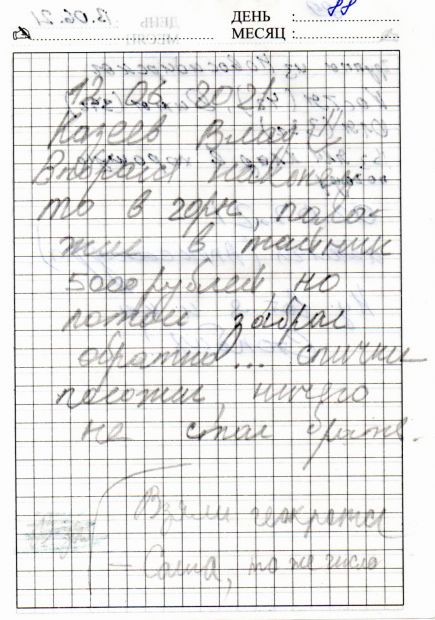 ДЕНЬ : 88
МЕСЯЦ :
12.06.2021
Казеев Влад
Взобрался наконец
то в горы, поло-
жил в тайник
5000 рублей, но
потом забрал
обратно... спички
положил, ничего
не стал брать.
Взяли геокрета
– Саша, то же число